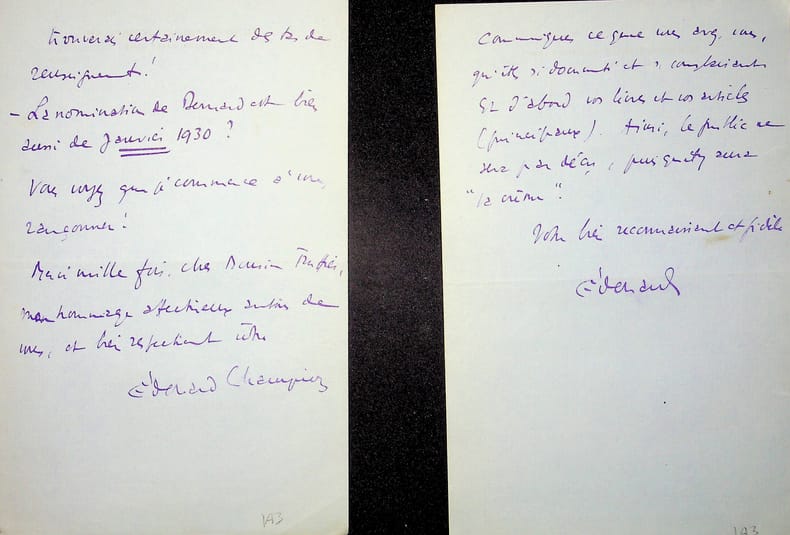 trouverai certainement des tas de
renseignements !
– La nomination de Bernard est bien
aussi de Janvier 1930 ?
Vous voyez que je commence à vous
rançonner !
Merci mille fois, cher Monsieur
mon hommage affectueux autour de
vous, et bien respectueusement vôtre
Édouard Champion
143
Communiquez ce que vous avez, vous,
qui êtes si documenté et si complaisant
Et d'abord vos livres et vos articles
(principaux). Ainsi, le public ne
sera pas déçu, puisqu'il y aura
"la crème".
Votre bien reconnaissant et fidèle
Édouard
143